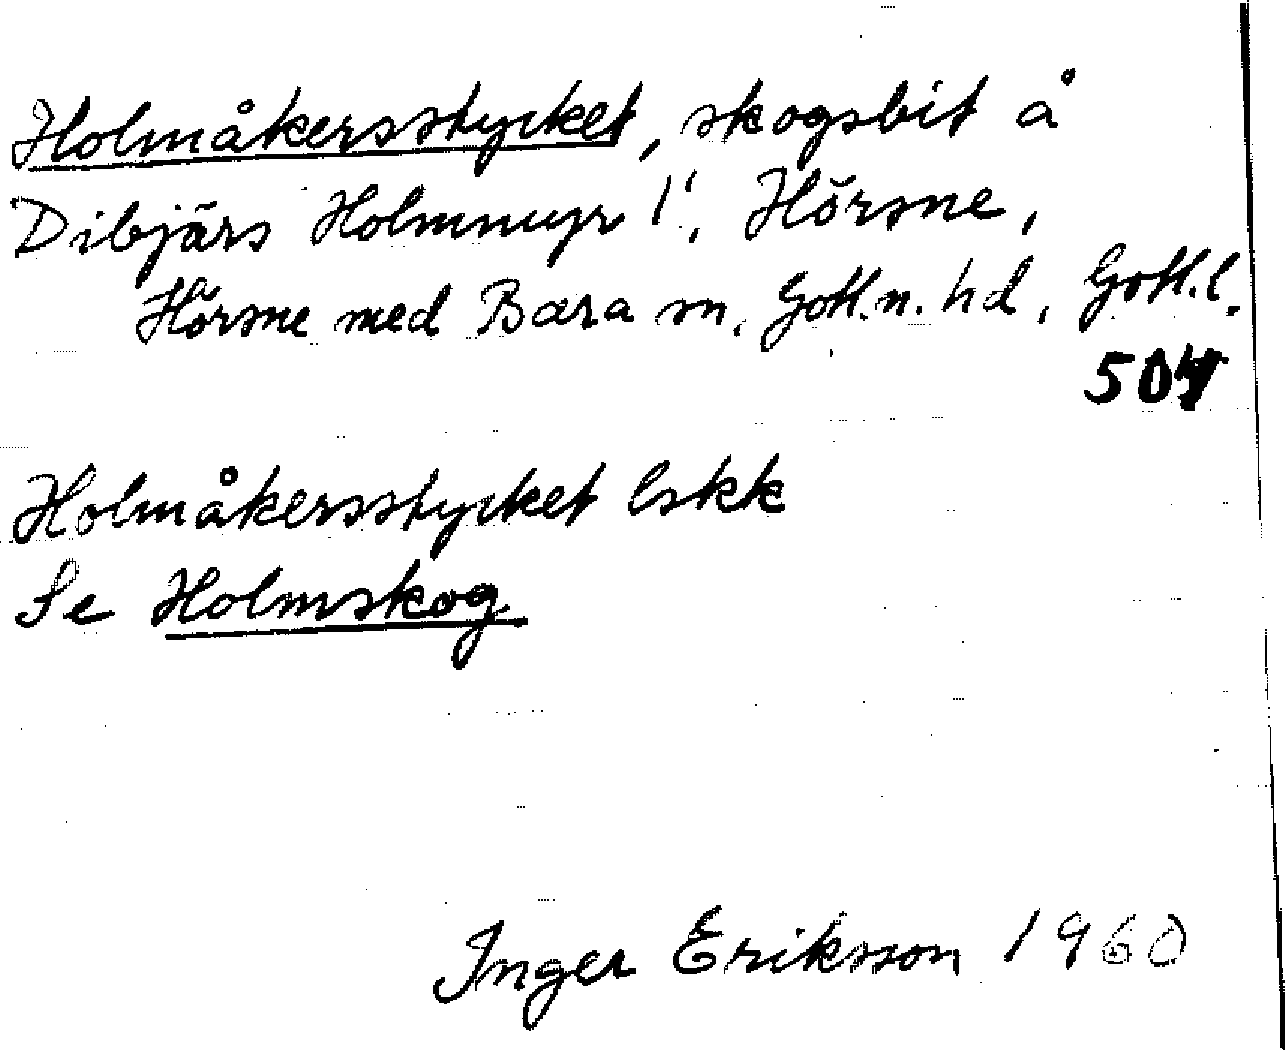 Holmåkersstycket, skogsbit å
Dibjärs Holmmyr 1¹, Hörsne,
Hörsne med Bara sn, Gotl.n. hd, Gotl.l.
504
Holmåkersstycket lskk
Se Holmskog
Inger Eriksson 1960